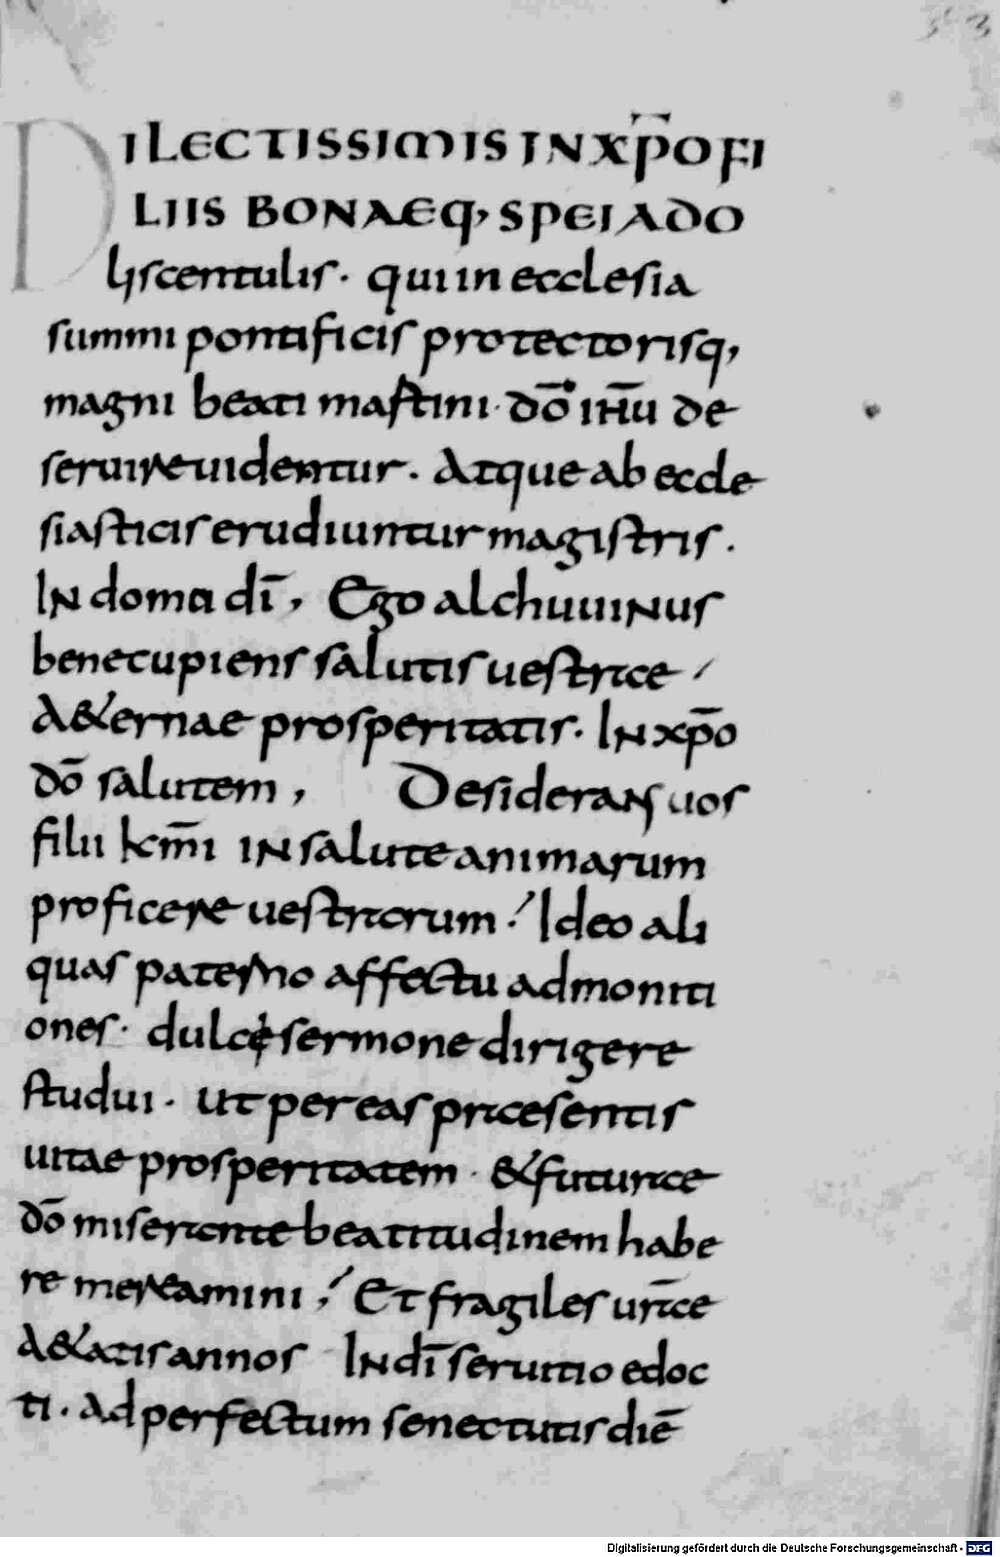 353
DILECTISSIMIS IN XP̄O FI
LIIS BONAEQ, SPEI ADO
liscentulis· qui in ecclesia
summi pontificis protectorisq,
magni beati martini· dō ihū de
seruire uidentur. Atque ab eccle
siasticis erudiuntur magistris.
In domu dī, Ego alchuuinus
bene cupiens salutis uestrae
A&ernae prosperitatis. In xp̄o
dō salutem, Desiderans uos
filii km̄i in salute animarum
proficere uestrarum! Ideo ali
quas paterno affectu admoniti
ones· dulce sermone dirigere
studui. ut per eas praesentis
uitae prosperitatem. & futurae
dō miserante beatitudinem habe
re mereamini! Et fragiles ur̄ae
A&atis annos In dī seruitio edoc
ti. Ad perfectum senectutis diē
Digitalisierung gefördert durch die Deutsche Forschungsgemeinschaft - DFG